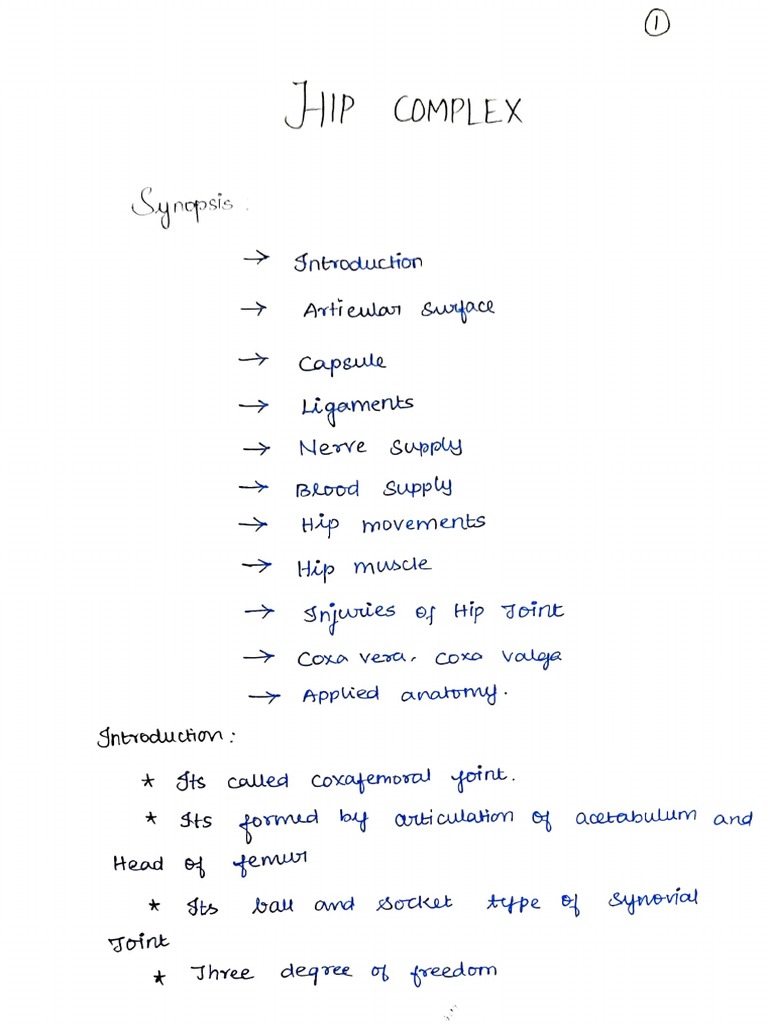 1
HIP COMPLEX
Synopsis :
→ Introduction
→ Articular surface
→ Capsule
→ Ligaments
→ Nerve supply
→ Blood supply
→ Hip movements
→ Hip muscle
→ Injuries of Hip Joint
→ Coxa vera, coxa valga
→ Applied anatomy.
Introduction :
* Its called coxafemoral joint.
* Its formed by articulation of acetabulum and
Head of femur
* Its ball and socket type of synovial
Joint
* Three degree of freedom